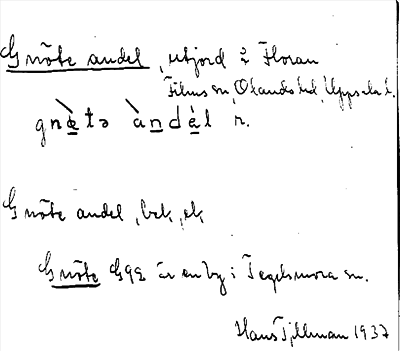 Gnöte andel, utjord å Floran
Films sn, Olands hd, Uppsala l.
gnètə àndél n.
Gnöte andel, bek, ek
Gnöte Gge är en by i Tegelsmora sn.
Hans Tjillman 1937